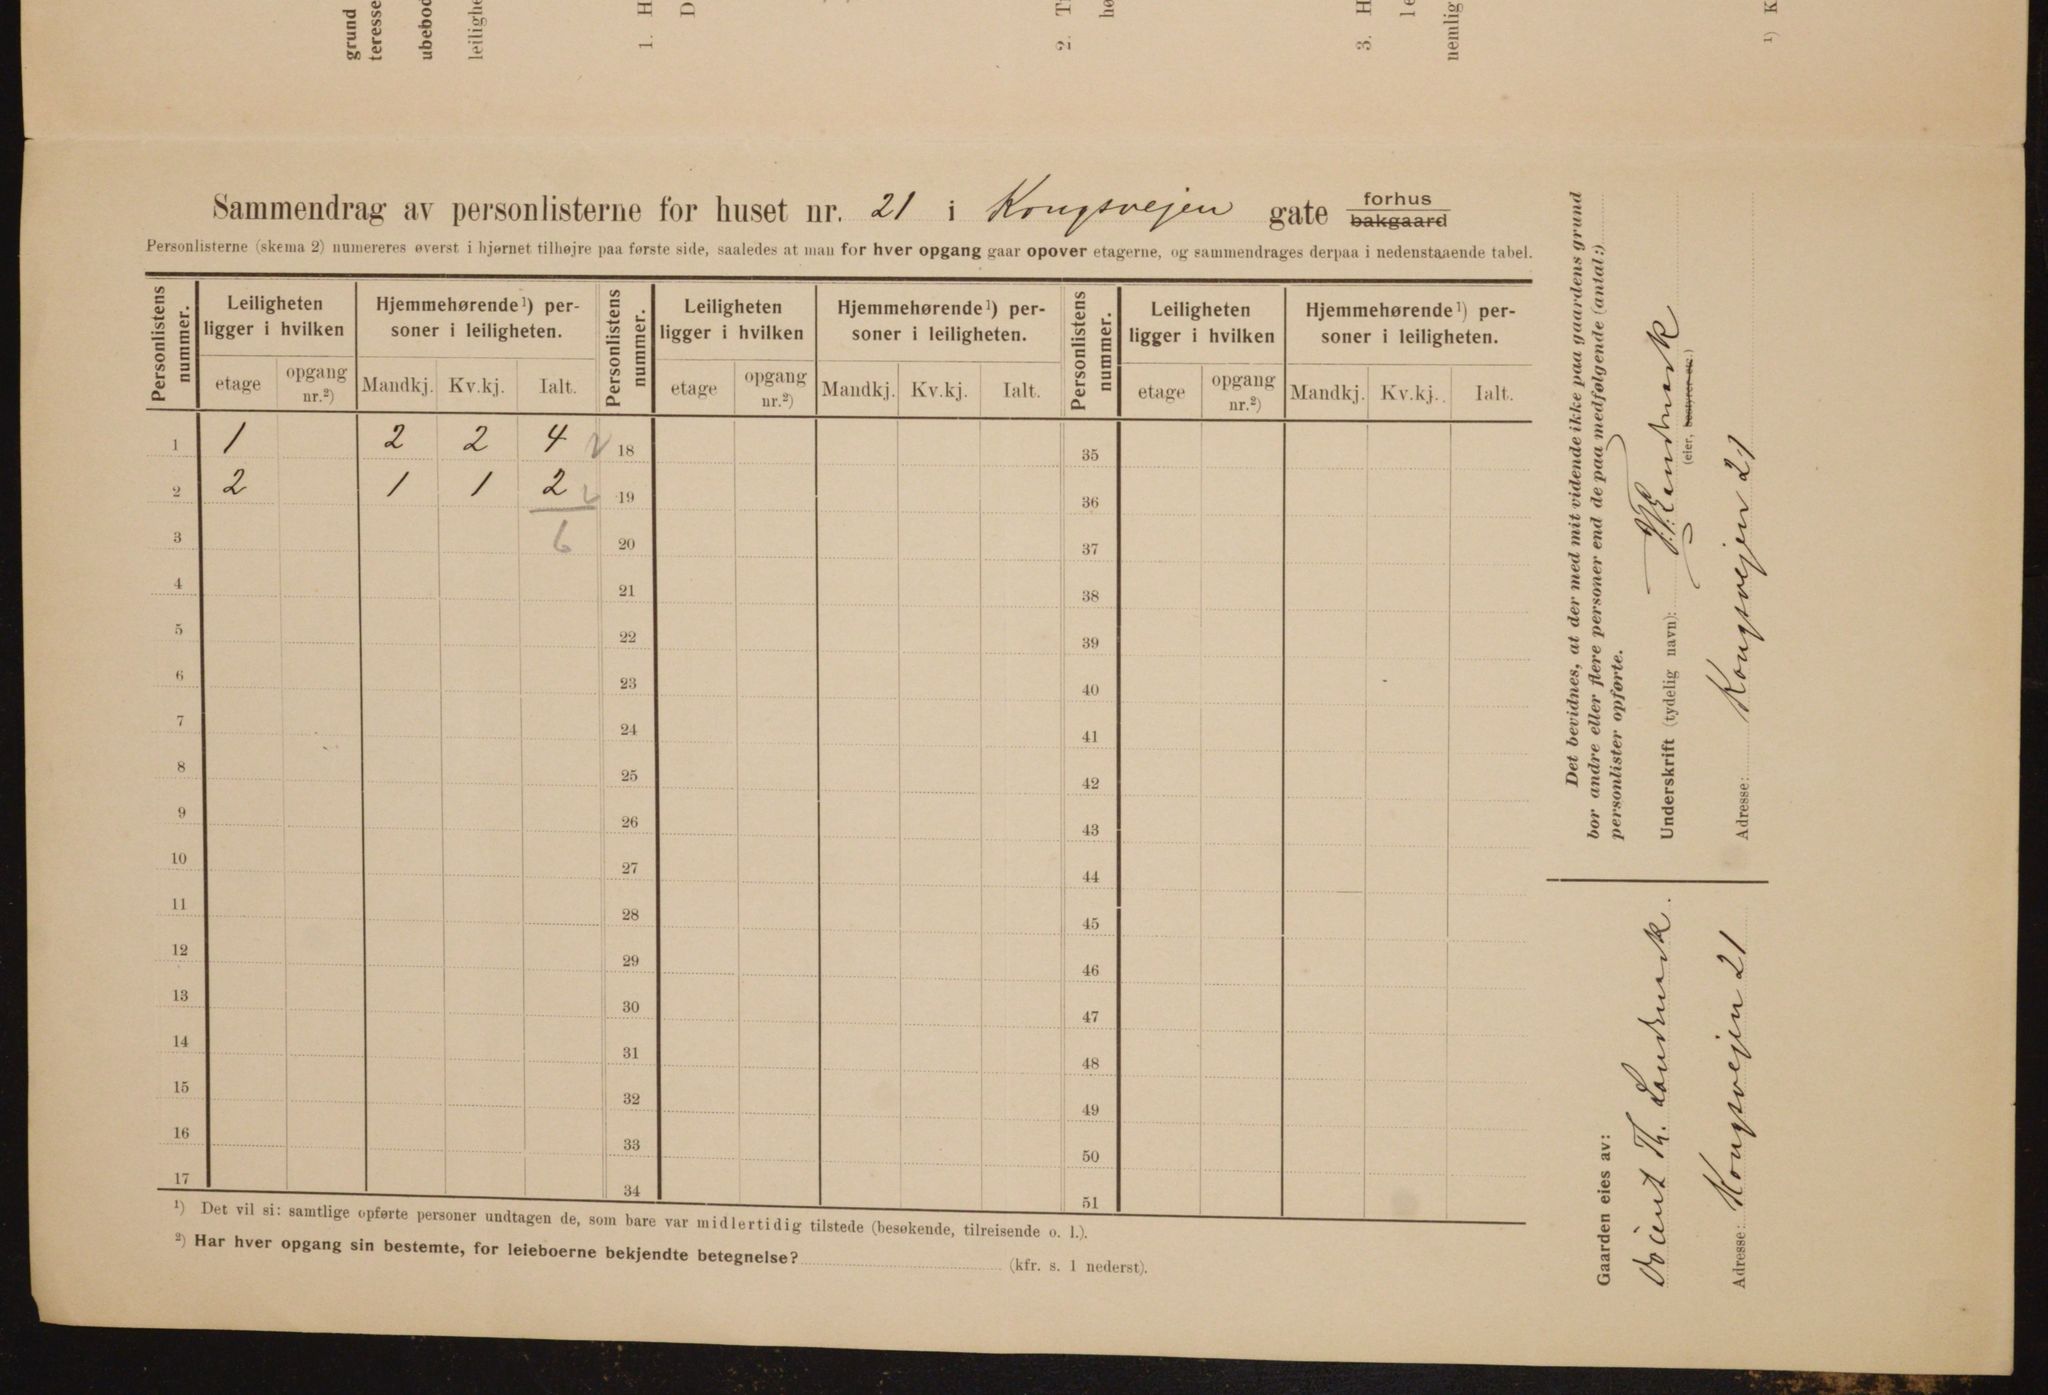 grund
teresse
ubebod
leilighe
1. H
D
2. T
hø
3. H
le
nemlig
1) K
Sammendrag av personlisterne for huset nr. 21 i Kongsvejen gate forhus
bakgaard
Personlisterne (skema 2) numereres øverst i hjørnet tilhøjre paa første side, saaledes at man for hver opgang gaar opover etagerne, og sammendrages derpaa i nedenstaaende tabel.
Personlistens nummer. Leiligheten ligger i hvilken Hjemmehørende1) per-soner i leiligheten. Personlistens nummer. Leiligheten ligger i hvilken Hjemmehørende1) per-soner i leiligheten. Personlistens nummer. Leiligheten ligger i hvilken Hjemmehørende1) per-soner i leiligheten.
etage opgang nr.2) Mandkj. Kv.kj. Ialt. etage opgang nr.2) Mandkj. Kv.kj. Ialt. etage opgang nr.2) Mandkj. Kv.kj. Ialt.
1 1 2 2 4 18 35
2 2 1 1 2 19 36
3 6 20 37
4 21 38
5 22 39
6 23 40
7 24 41
8 25 42
9 26 43
10 27 44
11 28 45
12 29 46
13 30 47
14 31 48
15 32 49
16 33 50
17 34 51
1) Det vil si: samtlige opførte personer undtagen de, som bare var midlertidig tilstede (besøkende, tilreisende o. l.).
2) Har hver opgang sin bestemte, for leieboerne bekjendte betegnelse? (kfr. s. 1 nederst).
Det bevidnes, at der med mit vidende ikke paa gaardens grund
bor andre eller flere personer end de paa medfølgende (antal:)
personlister opførte.
Underskrift (tydelig navn): Th. Landmark
(eier, bestyrer etc.)
Adresse: Kongsvejen 21
Gaarden eies av:
Docent Th. Landmark.
Adresse: Kongsvejen 21